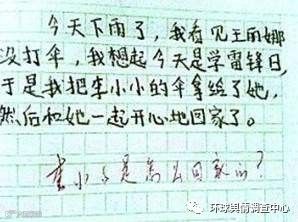 今天下雨了，我看见王丽娜
没打伞，我想起今天是学雷锋日，
于是我把李小小的伞拿给了她，
然后和她一起开心地回家了。
李小小是怎么回家的？
环球舆情调查中心